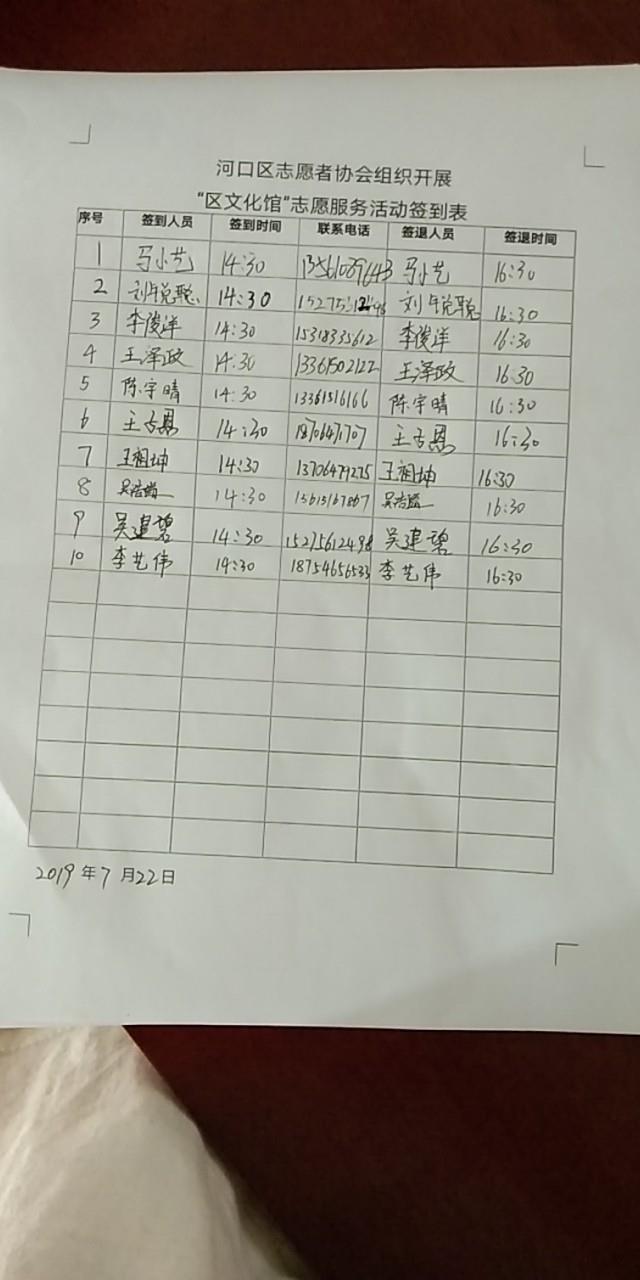 河口区志愿者协会组织开展
“区文化馆”志愿服务活动签到表
序号 签到人员 签到时间 联系电话 签退人员 签退时间
1 马小艺 14:30 13561089643 马小艺 16:30
2 刘 聪 14:30 刘 聪 16:30
3 李俊洋 14:30 15318335612 李俊洋 16:30
4 王泽政 14:30 13361502122 王泽政 16:30
5 陈宇晴 14:30 13361516166 陈宇晴 16:30
6 14:30 16:30
7 王祖坤 14:30 13706479275 王祖坤 16:30
8 14:30 16:30
9 吴建碧 14:30 15275612498 吴建碧 16:30
10 李艺伟 14:30 18754656533 李艺伟 16:30
2019年7月22日